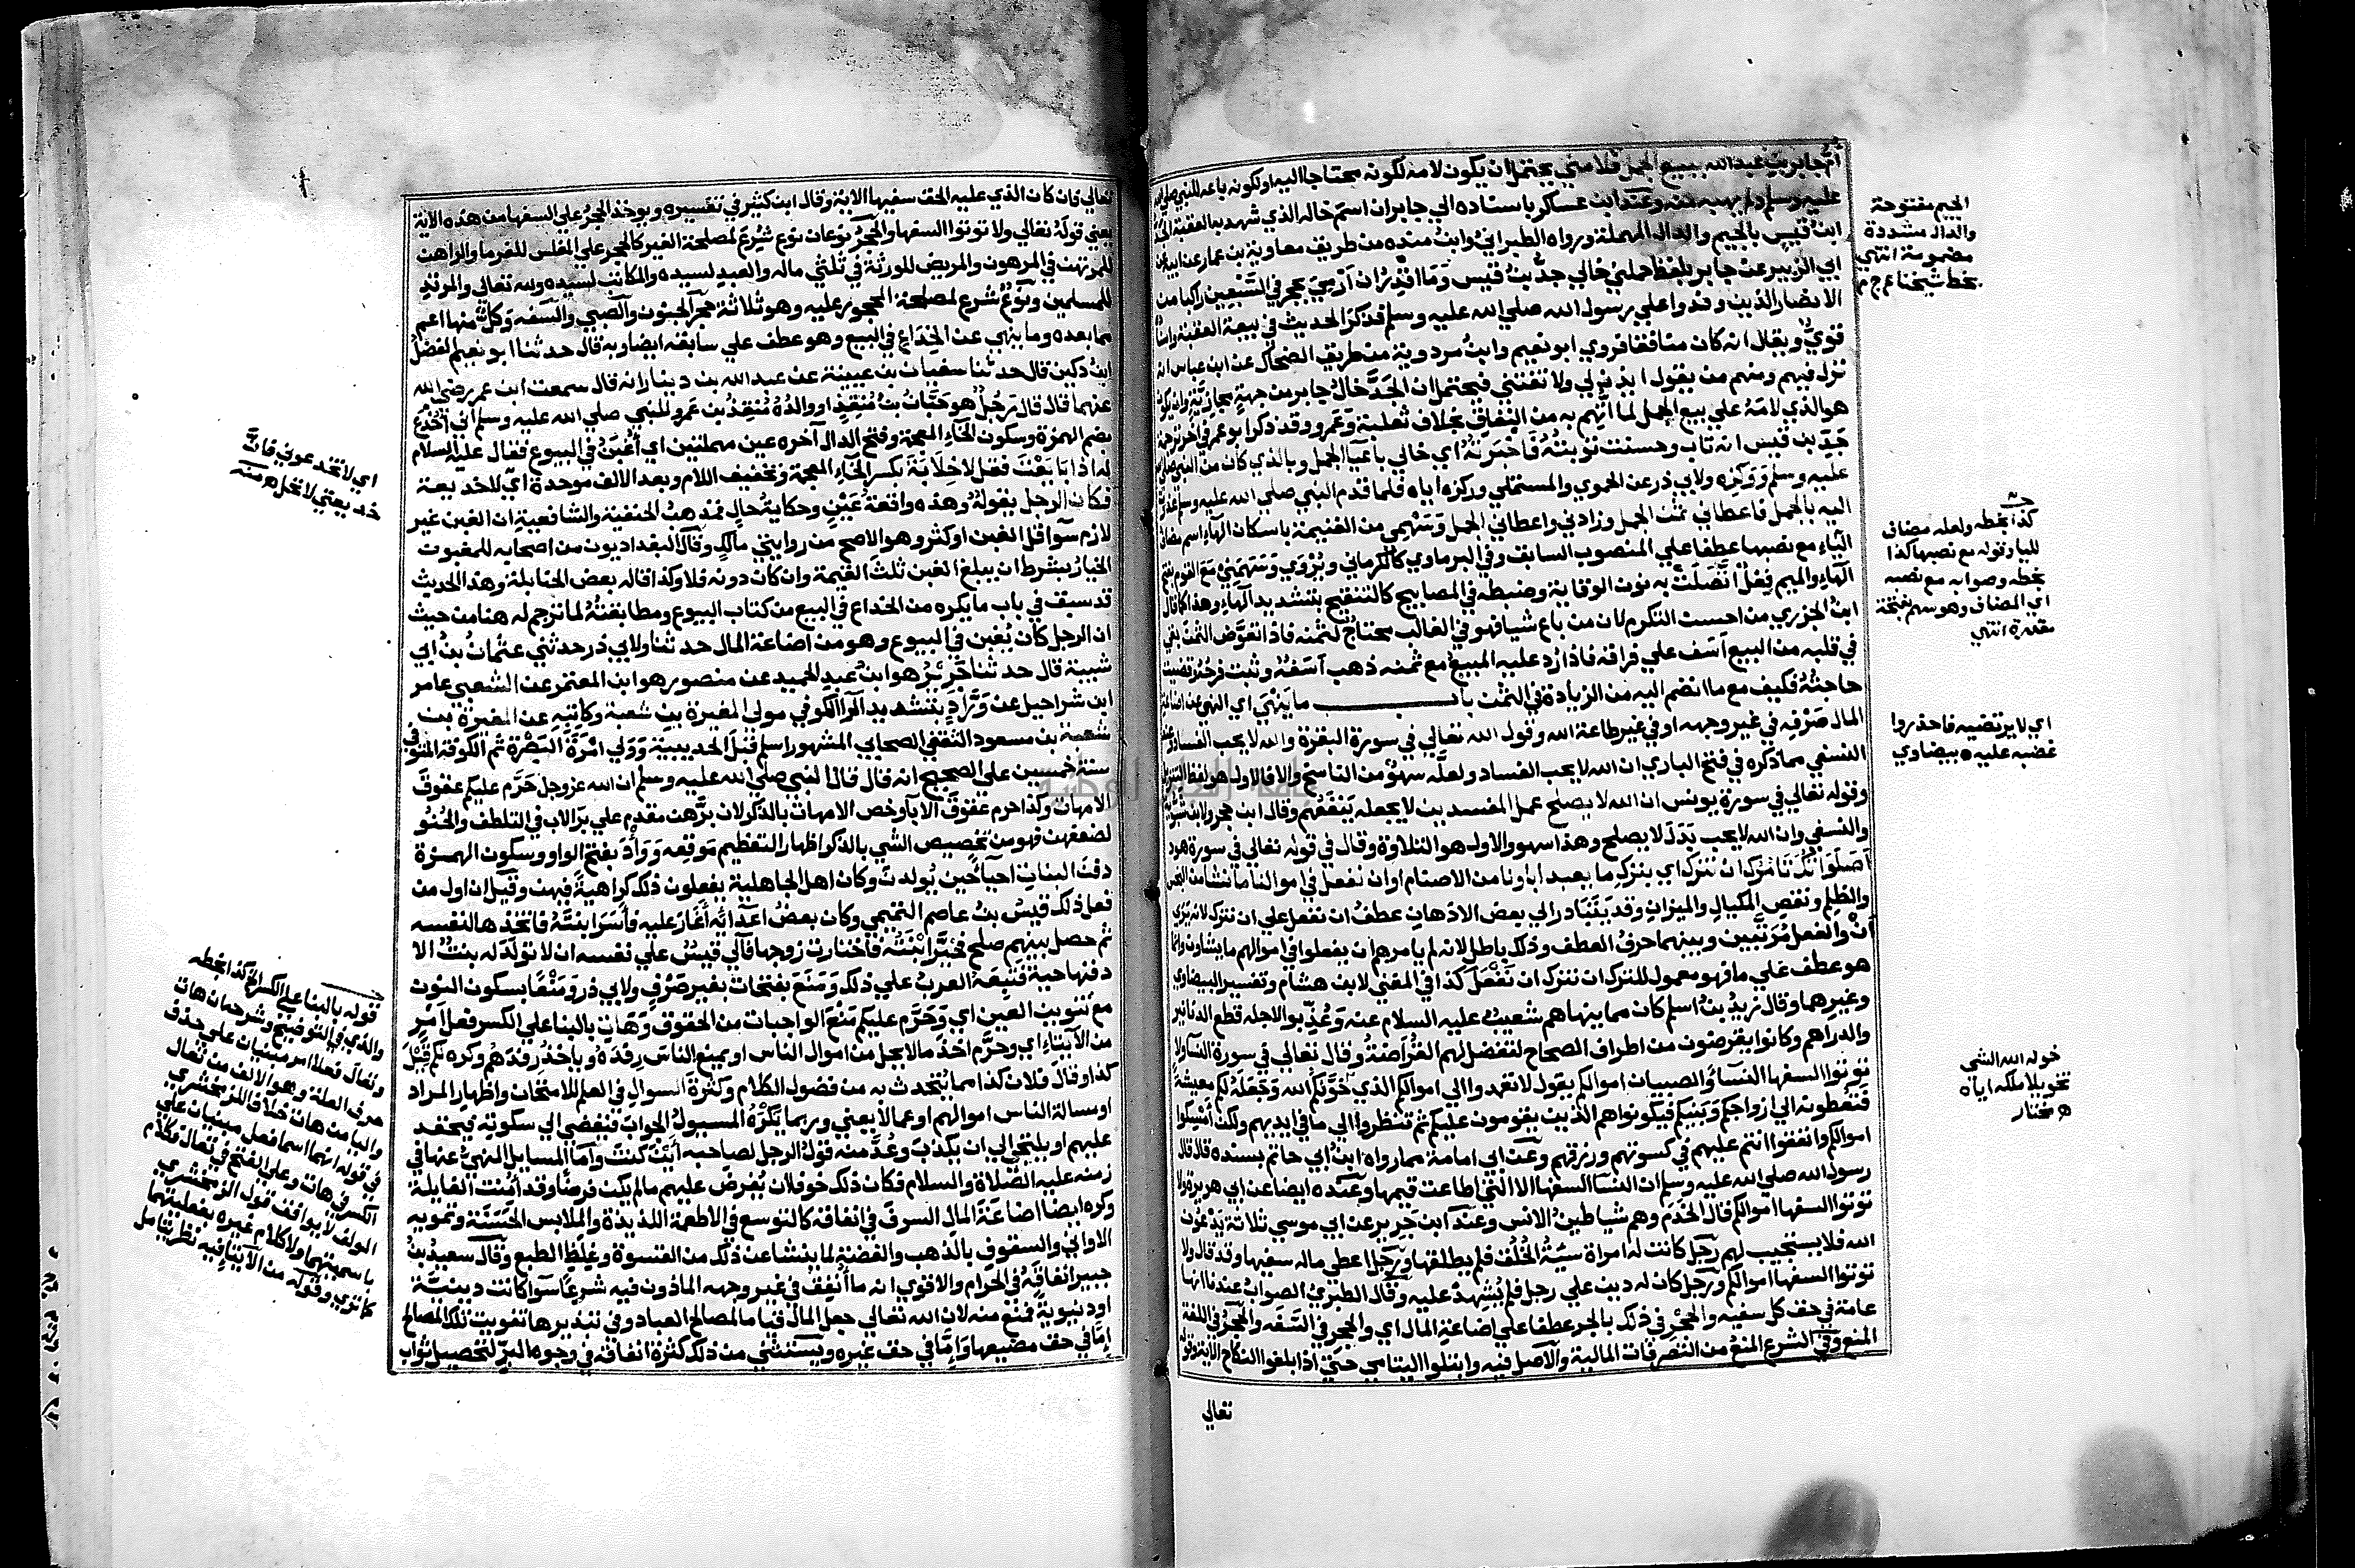 أم جابر بن عبد الله ببيع الجمل فلامني يحتمل ان يكون لامه لكونه محتاجا اليه او لكونه باعه للنبي صلى الله
عليه وسلم ولم يهبه منه وعند ابن عساكر باسناده الي جابر ان اسم خاله الذي شهد به العقبة الجد
ابن قيس بالجيم والدال المهملة ورواه الطبراني وابن منده من طريق معاوية بن عمار عن ابيه عن
ابي الزبير عن جابر بلفظ حملني خالي جد بن قيس وما اقدر ان ارمي بحجر في السبعين راكبا من
الانصار الذين وفدوا علي رسول الله صلي الله عليه وسلم فذكر الحديث في بيعة العقبة واسناده
قوي ويقال انه كان منافقا فروي ابو نعيم وابن مردوية من طريق الضحاك عن ابن عباس انه
نزل فيهم ومنهم من يقول ايذن لي ولا تفتني فيحتمل ان الجد خال جابر من جهة مجازية وان يكون
هو الذي لامه علي بيع الجمل لما اتهم به من النفاق بخلاف ثعلبة وعمرو وقد ذكر ابو عمر في اخر ترجمة
جد بن قيس انه تاب وحسنت توبته فاخبرته اي خالي باعيا الجمل وبالذي كان من النبي صلى الله
عليه وسلم ووكزه ولابي ذر عن الحموي والمستملي وركزه اياه فلما قدم النبي صلي الله عليه وسلم غدوت
اليه بالجمل فاعطاني ثمن الجمل وزادني واعطاني الجمل وسهمي من الغنيمة باسكان الهاء اسم مضاف
الياء مع نصبها عطفا علي المنصوب السابق وفي البرماوي كالكرماني ويروي وسهمني مع القوم بفتح
الهاء والميم فعل اتصلت به نون الوقاية وضبطه في المصابيح كالتنقيح بتشديد الهاء وهذا كما قال
ابن الجوزي من احسن التكرم لان من باع شيا فهو في الغالب محتاج لثمنه فاذا تعوض الثمن بقي
في قلبه من البيع اسف علي فراقه فاذا رد عليه المبيع مع ثمنه ذهب اسفه وثبت فرحه وقضيت
حاجته فكيف مع ما انضم اليه من الزيادة في الثمن باب ما ينهي اي النهي عن اضاعة
المال صرفه في غير وجهه او في غير طاعة الله وقول الله تعالي في سورة البقرة والله لا يحب الفساد وعند
النسفي مما ذكره في فتح الباري ان الله لا يحب الفساد ولعله سهو من الناسخ والا فالاول هو لفظ التنزيل
وقوله تعالي في سورة يونس ان الله لا يصلح عمل المفسدين لا يجعله ينفعهم وقال ابن حجر ولابن شبويه
والنسفي وان الله لا يحب بدل لا يصلح وهذا سهو والاول هو التلاوة وقال في قوله تعالي في سورة هود
اصلواتك تامرك ان نترك اي بترك ما يعبد اباونا من الاصنام او ان نفعل في اموالنا ما نشا من البخس
والظلم ونقص المكيال والميزان وقد يتبادر الي بعض الاذهان عطف ان نفعل علي ان نترك لانه يري
ان والفعل مرتبين وبينهما حرف العطف وذلك باطل لانه لم يامرهم ان يفعلوا في اموالهم ما يشاون وانما
هو عطف علي ما فهو معمول للترك ان نترك ان نفعل كذا في المغني لابن هشام وتفسير البيضاوي
وغيرهما وقال زيد بن اسلم كان مما ينهاهم شعيب عليه السلام عنه وعذبوا لاجله قطع الدنانير
والدراهم وكانوا يقرضون من اطراف الصحاح لتفضل لهم القراضة وقال تعالي في سورة النسا ولا
توتوا السفها النسا والصبيان اموالكم يقول لا تعمدوا الي اموالكم الذي خولكم الله وجعله لكم معيشة
فتعطونه الي ازواجكم وبنيكم فيكونوا هم الذين يقومون عليكم ثم تنظروا الي ما في ايديهم ولكن امسكوا
اموالكم وانفقوا انتم عليهم في كسوتهم ورزقهم وعن ابي امامة مما رواه ابن ابي حاتم بسنده قال قال
رسول الله صلي الله عليه وسلم ان النسا السفها الا التي اطاعت قيمها وعنده ايضا عن ابي هريرة ولا
توتوا السفها اموالكم قال الخدم وهم شياطين الانس وعند ابن جرير عن ابي موسي ثلاثة يدعون
الله فلا يستجيب لهم رجل كانت له امراة سيئة الخلق فلم يطلقها ورجل اعطي ماله سفيها وقد قال ولا
توتوا السفها اموالكم ورجل كان له دين علي رجل فلم يشهد عليه وقال الطبري الصواب عندنا انها
عامة في حق كل سفيه والحجر في ذلك بالجر عطفا علي اضاعة المال اي والحجر في السفه والحجر في اللغة
المنع وفي الشرع المنع من التصرفات المالية والاصل فيه وابتلوا اليتامي حتي اذا بلغوا النكاح الاية وقوله
تعالي
الجيم مفتوحة
والدال مشددة
مضمومة انتهي
بخط شيخنا ع ج م
كذا بخطه ولعله مضاف
للياء وقوله مع نصبها كذا
بخطه وصوابه مع نصبه
اي المضاف وهو سهم بفتحة
مقدرة انتهي
اي لا يرتضيه فاحذروا
غضبه عليه ه بيضاوي
خوله الله الشي
تخويلا ملكه اياه
ه مختار
تعالي فان كان الذي عليه الحق سفيها الاية وقال ابن كثير في تفسيره ويوخذ الحجر علي السفها من هذه الاية
يعني قوله تعالي ولا توتوا السفها والحجر نوعان نوع شرع لمصلحة الغير كالحجر علي المفلس للغرما والراهن
للمرتهن في المرهون والمريض للورثة في ثلثي ماله والعبد لسيده والمكاتب لسيده ولله تعالي والمرتد
للمسلمين ونوع شرع لمصلحة المحجور عليه وهو ثلاثة حجر الجنون والصبي والسفه وكل منها اعم
مما بعده وما ينهي عن الخداع في البيع وهو عطف علي سابقه ايضا وبه قال حدثنا ابو نعيم الفضل
ابن دكين قال حدثنا سفيان بن عيينة عن عبد الله بن دينار انه قال سمعت ابن عمر رضي الله
عنهما قال قال رجل هو حبان بن منقذ او والده منقذ بن عمرو للنبي صلي الله عليه وسلم اني اخدع
بضم الهمزة وسكون الخاء المعجمة وفتح الدال آخره عين مهملتين اي اغبن في البيوع فقال عليه السلام
له اذا بايعت فقل لا خلابة بكسر الخاء المعجمة وتخفيف اللام وبعد الالف موحدة اي لا خديعة
فكان الرجل يقوله وهذه واقعة عين وحكاية حال فمذهب الحنفية والشافعية ان الغبن غير
لازم سوا قل الغبن او كثر وهو الاصح من روايتي مالك وقال البغداديون من اصحابه للمغبون
الخيار بشرط ان يبلغ الغبن ثلث القيمة وان كان دونه فلا وكذا قاله بعض الحنابلة وهذا الحديث
قد سبق في باب ما يكره من الخداع في البيع من كتاب البيوع ومطابقته لما ترجم له هنا من حيث
ان الرجل كان يغبن في البيوع وهو من اضاعة المال حدثنا ولابي ذر حدثني عثمان بن ابي
شيبة قال حدثنا جرير هو ابن عبد الحميد عن منصور هو ابن المعتمر عن الشعبي عامر
ابن شراحيل عن وراد بتشديد الرا الكوفي مولي المغيرة بن شعبة وكاتبه عن المغيرة بن
شعبة بن مسعود الثقفي الصحابي المشهور اسلم قبل الحديبية وولي امرة البصرة ثم الكوفة المتوفي
سنة خمسين علي الصحيح انه قال قال النبي صلي الله عليه وسلم ان الله عز وجل حرم عليكم عقوق
الامهات وكذا حرم عقوق الابا وخص الامهات بالذكر لان برهن مقدم علي بر الاب في التلطف والحنو
لضعفهن فهو من تخصيص الشي بالذكر اظهار التعظيم موقعه وواد بفتح الواو وسكون الهمزة
دفن البنات احيا حين يولدن وكان اهل الجاهلية يفعلون ذلك كراهية فيهن وقيل ان اول من
فعل ذلك قيس بن عاصم التميمي وكان بعض اعدائه اغار عليه فاسر ابنته فاتخذها لنفسه
ثم حصل بينهم صلح فخير ابنته فاختارت زوجها فآلي قيس علي نفسه ان لا تولد له بنت الا
دفنها حية فتبعه العرب علي ذلك ومنع بفتحات بغير صرف ولابي ذر ومنعا بسكون النون
مع تنوين العين اي وحرم عليكم منع الواجبات من الحقوق وهات بالبنا علي الكسر فعل امر
من الايتاء اي وحرم اخذ ما لا يحل من اموال الناس او يمنع الناس رفده وياخذ رفدهم وكره لكم قيل
كذا وقال فلان كذا مما يتحدث به من فضول الكلام وكثرة السوال في العلم للامتحان واظهار المراد
او مسالة الناس اموالهم او عما لا يعني وربما يكره المسيول الجواب فيفضي الي سكوته فيحقد
عليهم او يلتجي الي ان يكذب وعد منه قول الرجل لصاحبه اين كنت واما المسايل المنهي عنها في
زمنه عليه الصلاة والسلام فكان ذلك خوف ان يفرض عليهم ما لم يكن فرضا وقد امنت الغايلة
وكره ايضا اضاعة المال السرف في انفاقه كالتوسع في الاطعمة اللذيذة والملابس الحسنة وتمويه
الاواني والسقوف بالذهب والفضة لما ينشا عن ذلك من القسوة وغلظ الطبع وقال سعيد بن
جبير انفاقه في الحرام والاقوي انه ما انفق في غير وجهه الماذون فيه شرعا سوا كانت دينية
او دنيوية فمنع منه لان الله تعالي جعل المال قياما لمصالح العباد وفي تبذيرها تفويت تلك المصالح
إما في حق مضيعها واما في حق غيره ويستثني من ذلك كثرة انفاقه في وجوه البر لتحصيل ثواب
اي لا تخدعوني فان
خديعتي لا تحل ه منه
قوله بالبنا علي الكسر الخ كذا بخطه
والذي في التوضيح وشرحه ان هات
وتعال فعلا امر مبنيان علي حذف
حرف العلة وهو الالف من تعال
واليا من هات خلافا للزمخشري
في قوله انهما اسما فعل مبنيان علي
الكسر في هات وعلي الفتح في تعال فكلام
المولف لا يوافق قول الزمخشري
باسميتهما ولا كلام غيره بفعليتهما
كما تري وقوله من الايتا فيه نظر يتامل